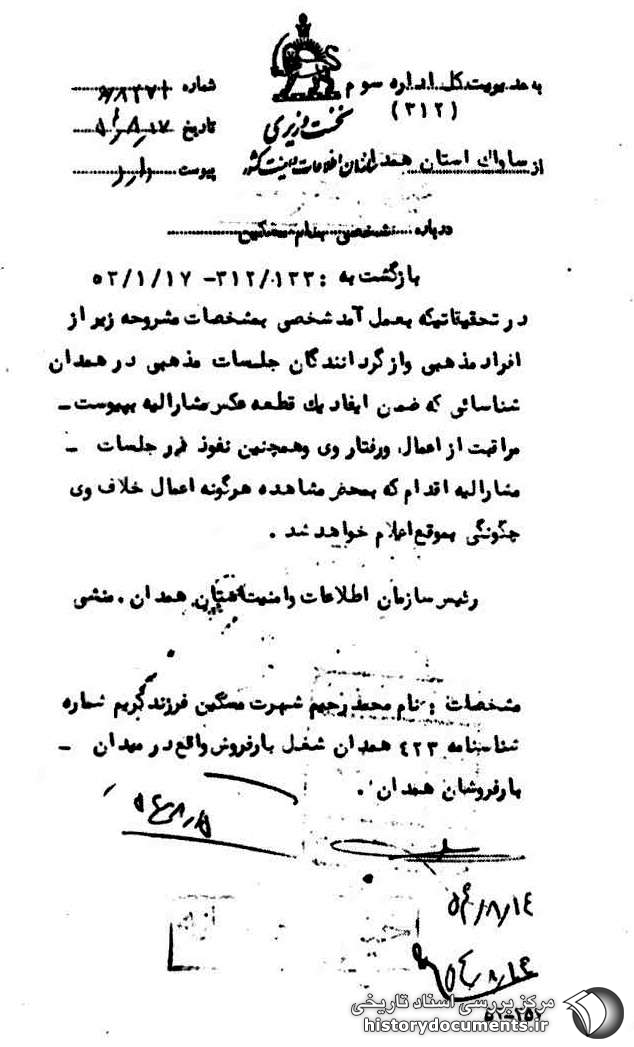 به مدیریت کل اداره سوم
(۳۱۲)
نخست وزیری
سازمان اطلاعات و امنیت کشور
از ساواک استان همدان
شماره
تاریخ
پیوست دارد
درباره شخصی بنام مسگین
بازگشت به : ۳۱۲/۰۱۳۳- ۵۳/۱/۱۷
در تحقیقاتیکه بعمل آمد شخصی بمشخصات مشروحه زیر از
افراد مذهبی واز گردانندگان جلسات مذهبی در همدان
شناسائی که ضمن ایفاد یك قطعه عکس مشارالیه بپیوست -
مراقبت از اعمال ورفتار وی وهمچنین نفوذ در جلسات -
مشارالیه اقدام که بمحض مشاهده هرگونه اعمال خلاف وی
چگونگی بموقع اعلام خواهد شد .
رئیس سازمان اطلاعات وامنیت استان همدان . منشی
مشخصات : نام محمد رحیم شهرت مسگین فرزند کریم شماره
شناسنامه ۴۲۳ همدان شغل بارفروش واقع در میدان -
بارفروشان همدان .
۵۴/۸/۱۴
۵۴/۸/۱۴
مرکز بررسی اسناد تاریخی
historydocuments.ir